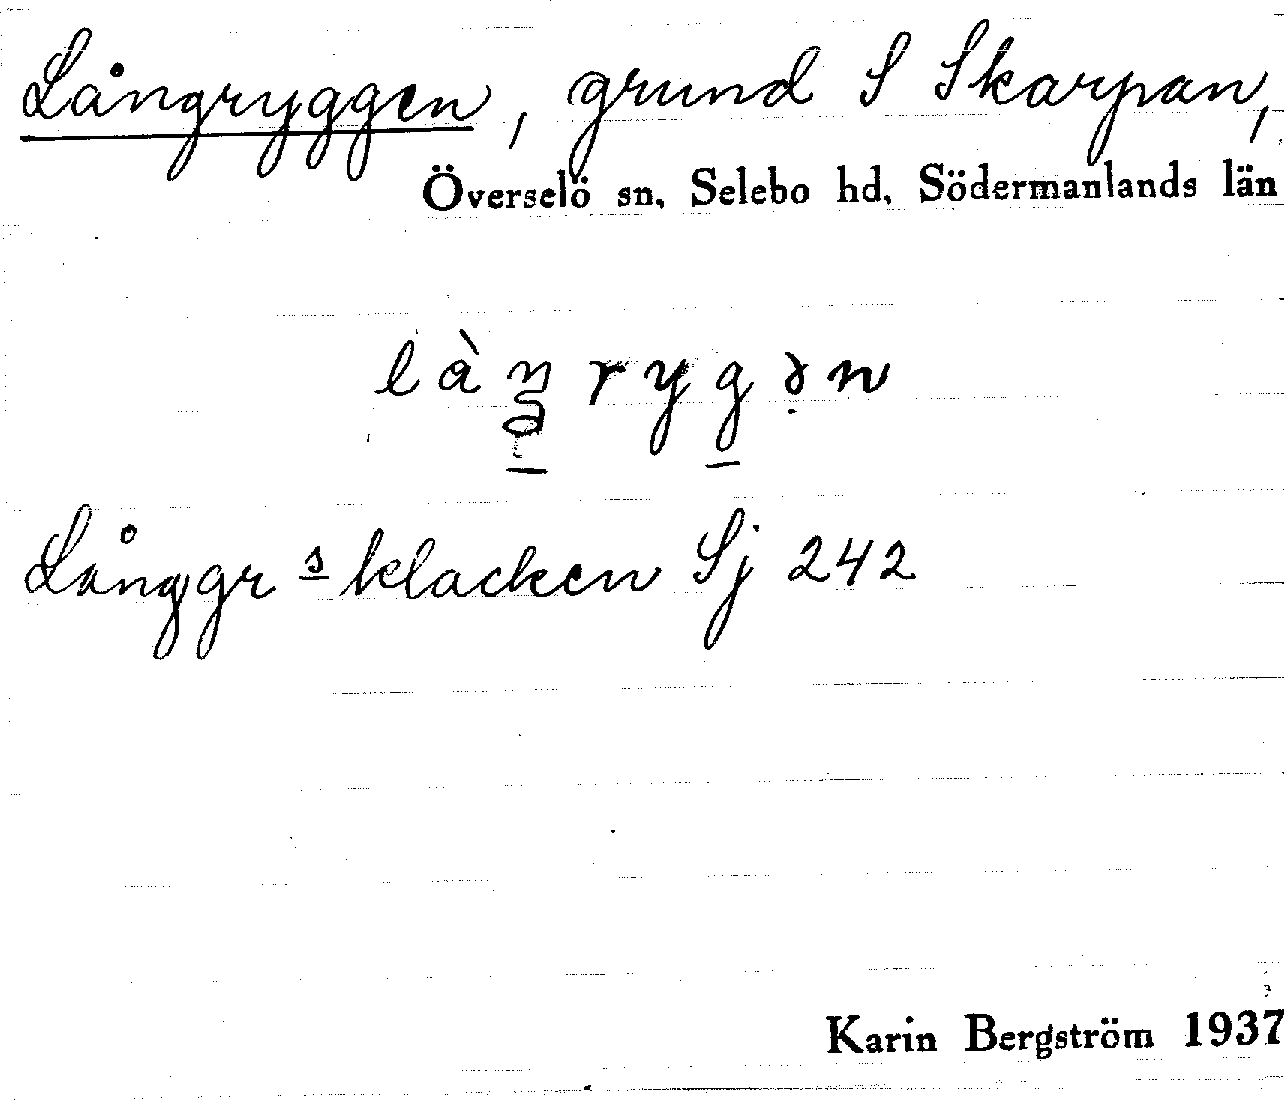 Långryggen, grund S Skarpan,
Överselö sn, Selebo hd, Södermanlands län
Långgrsklacken Sj 242
Karin Bergström 1937